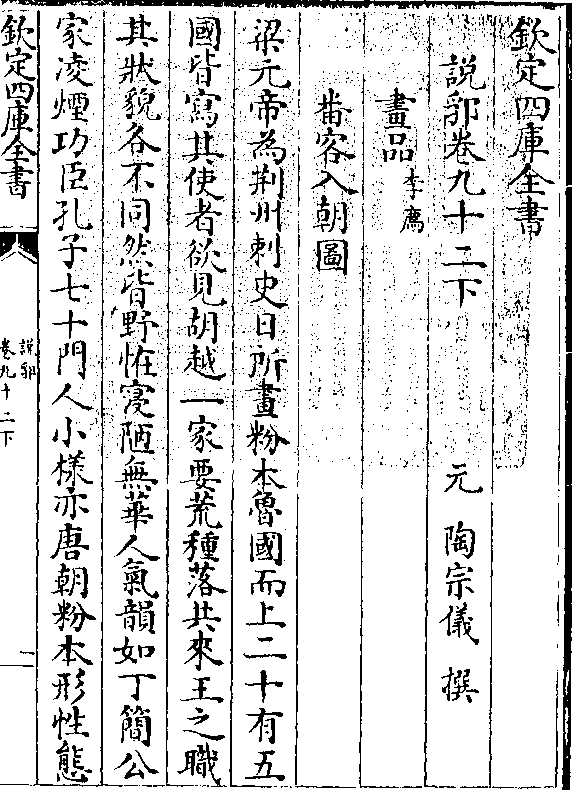 欽定四庫全書
說郛卷九十二下
元 陶宗儀 撰
畫品李廌
畨客入朝圖
梁元帝為荆州刺史日所畫粉本魯國而上二十有五
國皆寫其使者欲見胡越一家要荒種落共來王之職
其狀貌各不同然皆野怪寢陋無華人氣韻如丁簡公
家凌煙功臣孔子七十門人小様亦唐朝粉本形性態
欽定四庫全書
說郛
卷九十二下
一